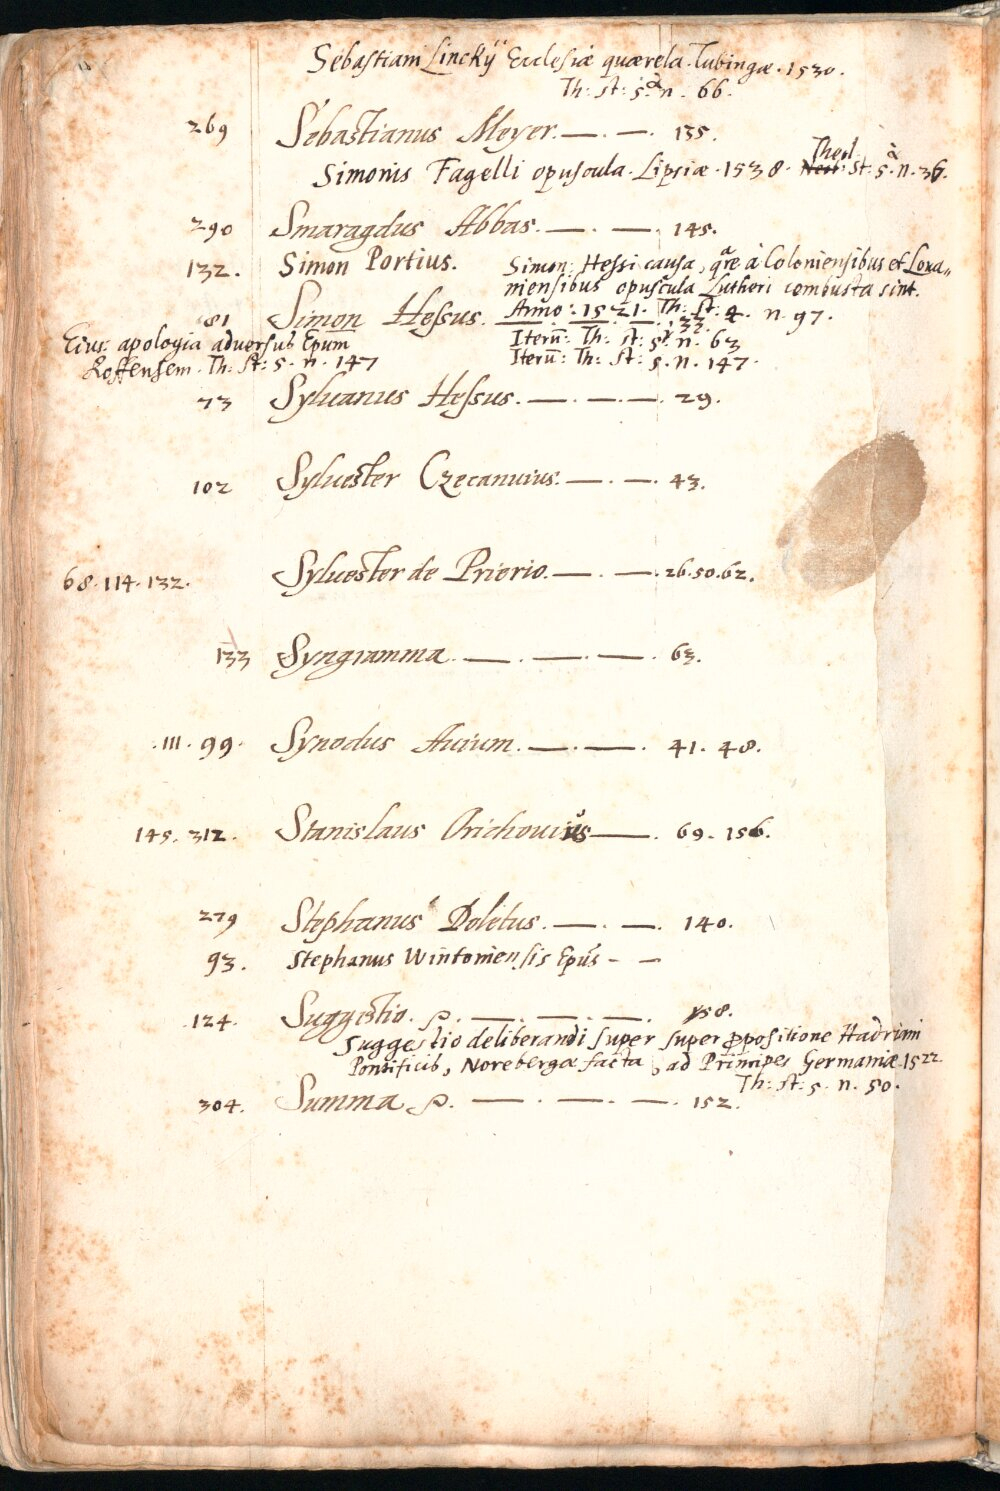 Sebastiani Linckÿ Ecclesiæ quærela. Tubingæ. 1530.
Th: St: 5. n. 66.
269 Sebastianus Meyer. — . — . 135.
Simonis Fagelli opuscula. Lipsiæ. 1538. Theol. St: 5. n. 36.
290 Smaragdus Abbas. — . — . 145.
132. Simon Portius. Simon: Hessi causa, qr̃e à Coloniensibus et Lova„
niensibus opuscula Lutheri combusta sint.
Anno: 1521. Th: St: 4. n. 97.
81 Simon Hessus. — . — . — . 33.
Iterũ: Th: St: 5. n. 63
Iterũ: Th: St: 5. n. 147.
Eius apologia adversus Epum
Roffensem. Th: St: 5. n. 147
73 Sylvanus Hessus. — . — . — . 29.
102 Sylvester Czecanuius. — . — . 43.
68. 114. 132. Sylvester de Prierio. — . — . 26. 50. 62.
133 Syngramma. — . — . — . 63.
.111. 99. Synodus Auium. — . — . 41. 48.
145. 312. Stanislaus Orichouius — . 69. 156.
279 Stephanus Doletus. — . — . 140.
93. Stephanus Wintoniensis Epus̃ - —
124. Suggestio. — . — . — . 58.
Suggestio deliberandi super super ꝓpositione Hadriani
Pontificis, Norebergæ facta, ad Principes Germaniæ. 1522
Th: St: 5. n. 50.
304. Summa — . — . — . 152.